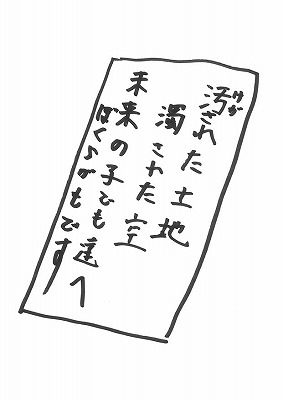 汚された土地
けが
濁された空
未来の子ども達へ
ぼくらがもどす